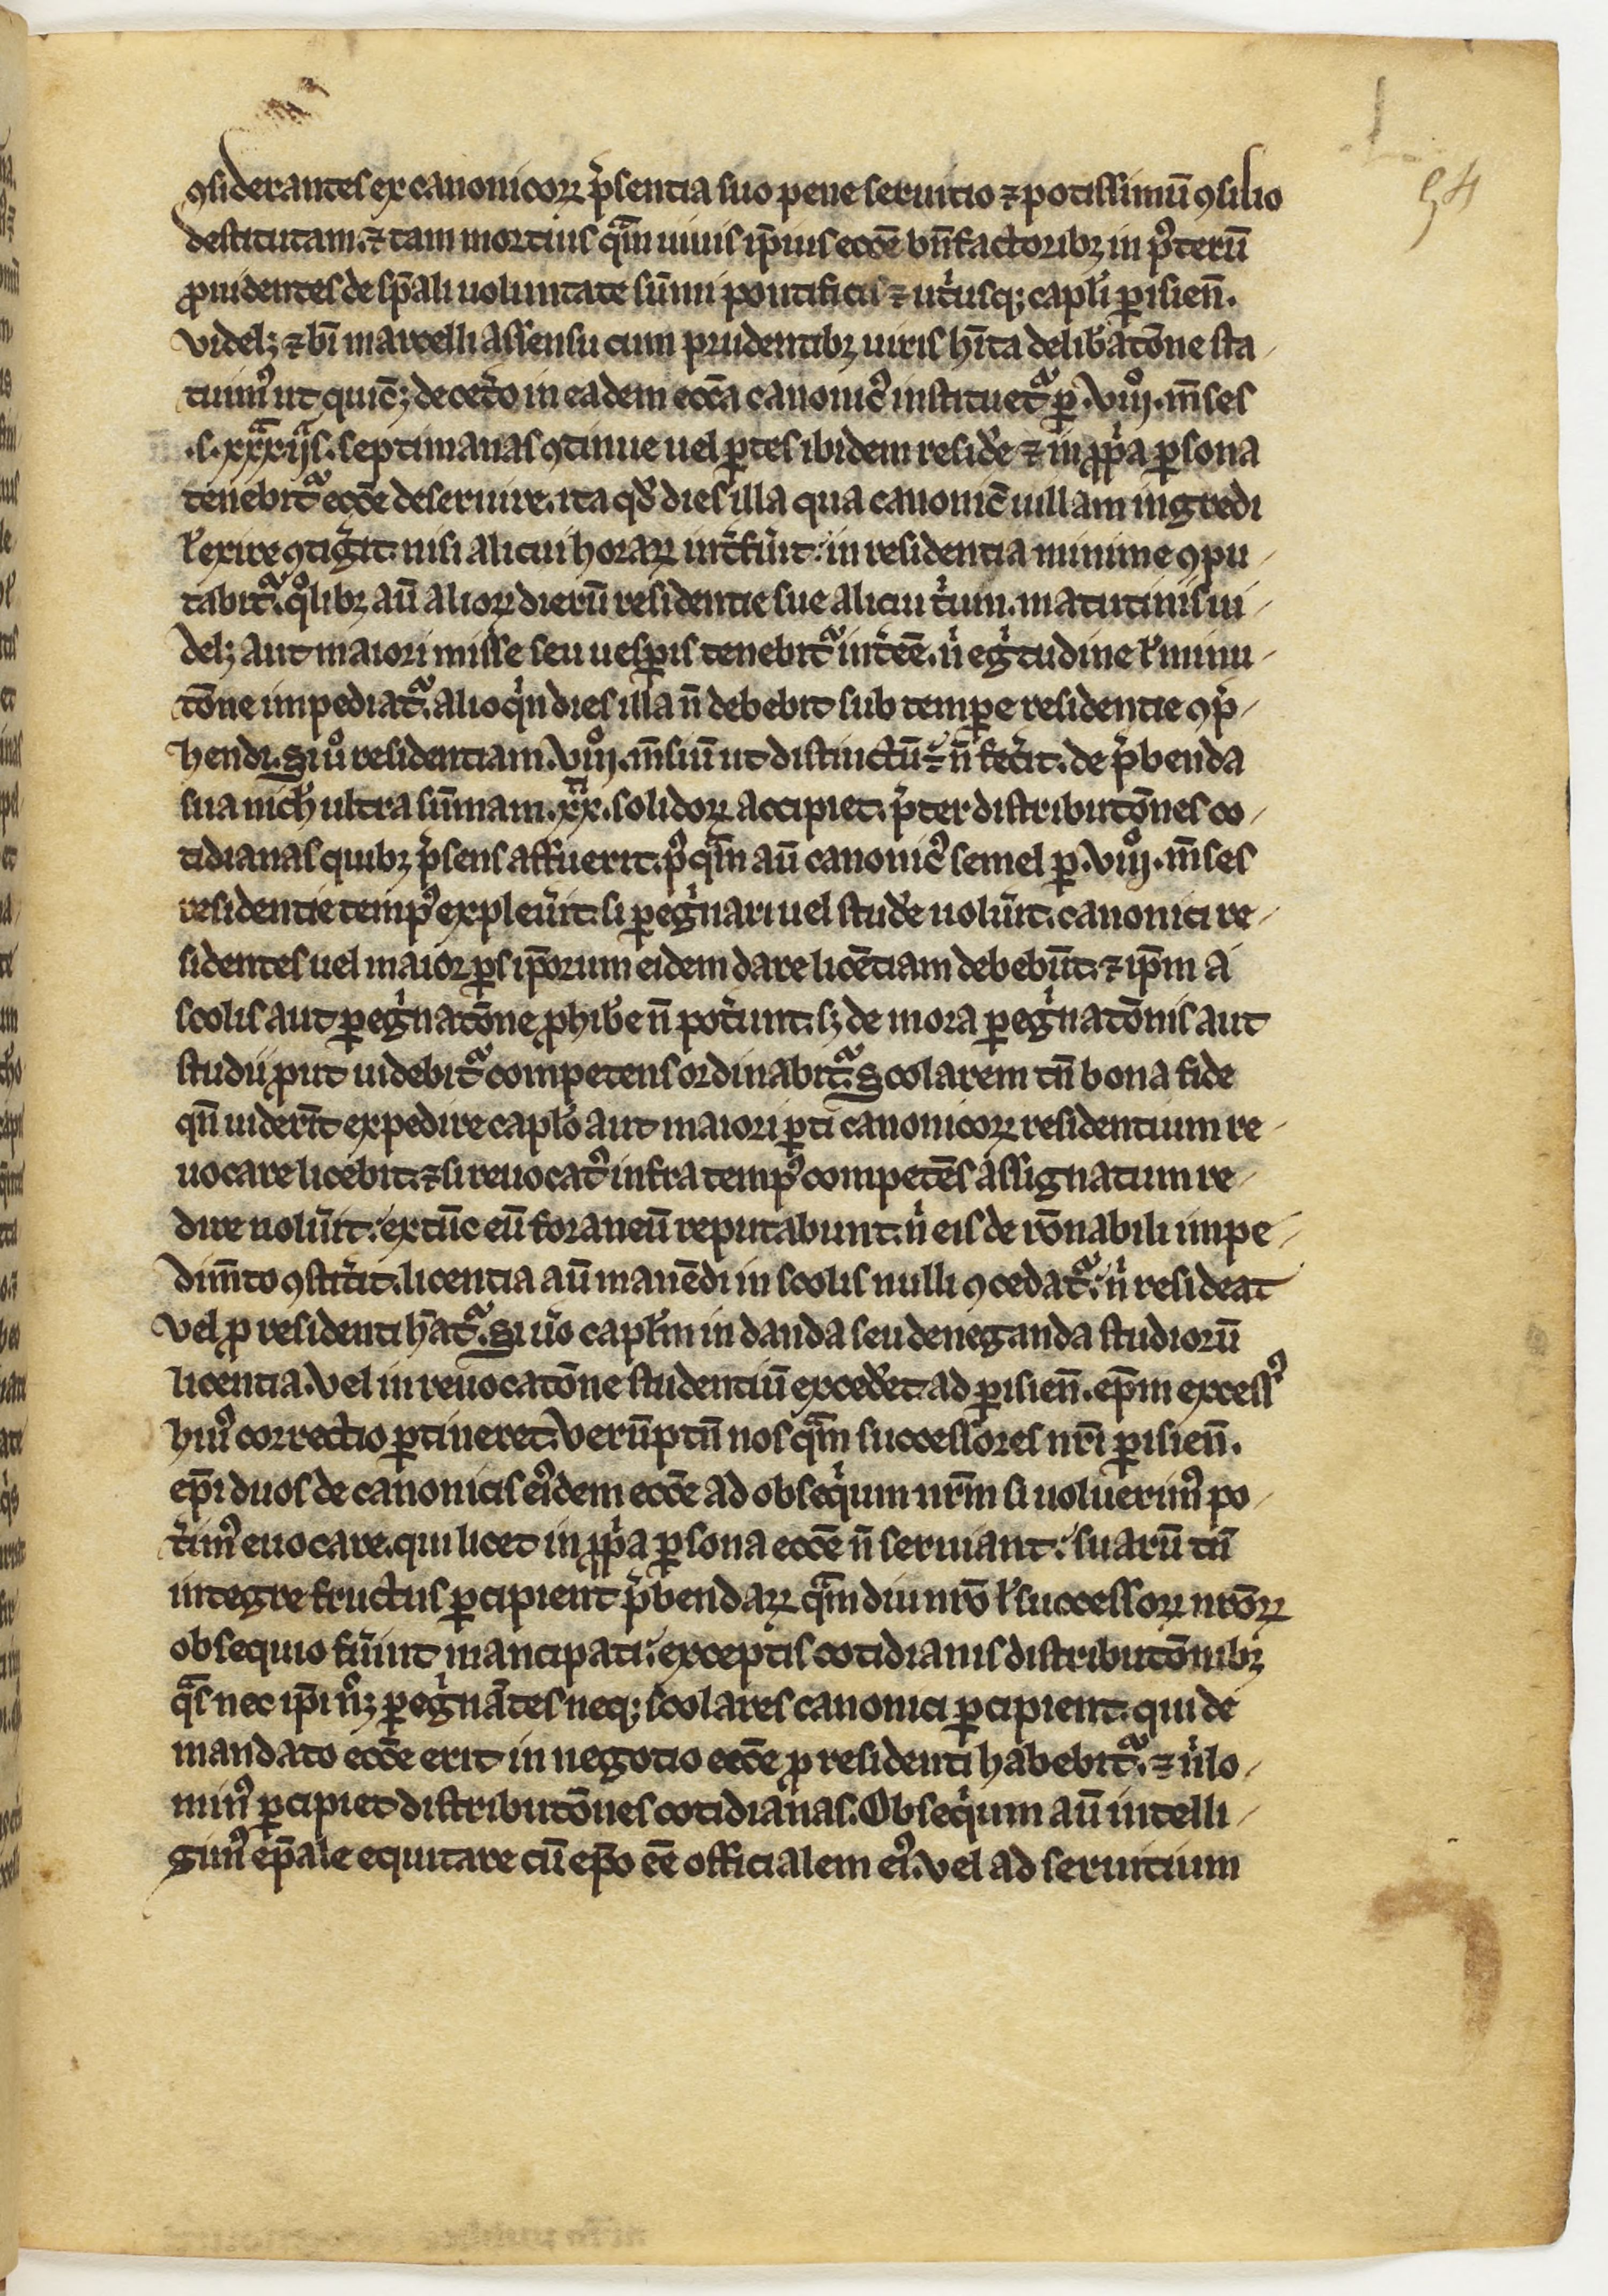 54
ꝯsiderantes ex canonicoꝝ p̾sentia suo pene seruitio ⁊ potissimū ꝯsilio
destitutam. ⁊ tam mortuis qᵃ̄m uiuis ip̄ius ecc̄e bn̄factoribꝫ in pꝰterū
ꝓuidentes de sp̄ali uoluntate sūmi pontificis ⁊ ut͛usqꝫ capl̓i ꝑisien̄.
videlꝫ ⁊ bī marcelli assensu cum prudentibꝫ uiris hīta delib̓atōne sta-
tuimꝰ ut quicūꝫ de cet͛o in eadem ecc̄a canonicꝰ instituet᷑ ꝑ .viijᵒ. m̄ses
.s. xxxᵃijᵃs. septimanas ꝯtinue uel ꝑtes ibidem resid̓e ⁊ in ꝓp̾a ꝑsona
tenebit᷑ ecc̄e deseruire. ita qd̓ dies illa qua canonic̄ uillam ingredi
ł exire ꝯtig̾it. nisi alicui horaꝝ int͛fu͛it. in residentia minime ꝯpu-
tabit᷑. qᵒlibꝫ aū alioꝝ dierū residentie sue alicui t͛ium. matutinis ui-
delꝫ aut maiori misse seu uesꝑis tenebit᷑ int͛eē. n̾ eg̾tudine ł minu-
tōne impediat᷑. alioqͥn dies illa n̄ debebit sub temꝑe residentie ꝯp̾-
hendi. Si uᵒ residentiam .viijᵒ. m̄siū ut distinctū ē n̄ fec͛it. de p̾benda
sua nich̓ ultra sūmam .xxᵗⁱ. solidoꝝ accipiet. p̾ter distributōnes co-
tidianas quibꝫ p̾sens affuerit. pꝰqᵃ̄m aū canonicꝰ semel ꝑ .viijᵒ. m̄ses
residentie tempꝰ expleu͛it. si ꝑeg̾nari uel stud̓e uolu͛it. canonici re-
sidentes uel maior ꝑs ip̄orum eidem dare licētiam debebūt. ⁊ ip̄m a
scolis aut ꝑeg̾natōne ꝓhib̓e n̄ pot͛unt. sꝫ de mora ꝑeg̾natōnis aut
studii ꝓut uidebit᷑ competens ordinabit᷑. Scolarem tn̄ bona fide
qn̄ uiderīt expedire capl̓o aut maiori ꝑti canonicoꝝ residentium re-
uocare licebit. ⁊ si reuocatꝰ infra tempꝰ competēs assignatum re-
dire nolu͛it. ex tūc eū foraneū reputabunt. n̾ eis de rōnabili impe-
dim̄to ꝯstit͛it. licentia aū manēdi in scolis nulli ꝯcedat᷑. n̾ resideat
vel ꝓ residenti hāt᷑. Si u͛o capl̓m in danda seu deneganda studiorū
licentia. vel in reuocatōne studentiū exced̓et. ad ꝑisien̄. ep̄m excessꝰ
huiꝰ correctio ꝑtineret. verūptn̄ nos qᵃ̄m successores nr̄i ꝑisien̄.
ep̄i duos de canonicis eiꝰdem ecc̄e ad obseqͥum nr̄m si uoluerimꝰ po-
t͛imꝰ euocare. qui licet in ꝓp̾a ꝑsona ecc̄e n̄ seruiant. suarū tn̄
integre fructus ꝑcipient p̾bendaꝝ qᵃ̄mdiu nr̄o ł successoꝝ nr̄oꝝ
obsequio fu͛int mancipati. exceptis cotidianis distributōnibꝫ
qᵃs nec ip̄i nᵒꝫ ꝑeg̾nātes neqꝫ scolares canonici ꝑcipient. qui de
mandato ecc̄e erit in negotio ecc̄e ꝓ residenti habebit᷑. ⁊ nͥlo-
minꝰ ꝑcipiet distributōnes cotidianas. Obseqͥum aū intelli-
gimꝰ ep̄ale equitare cū ep̄o eē officialem eiꝰ. vel ad seruitium